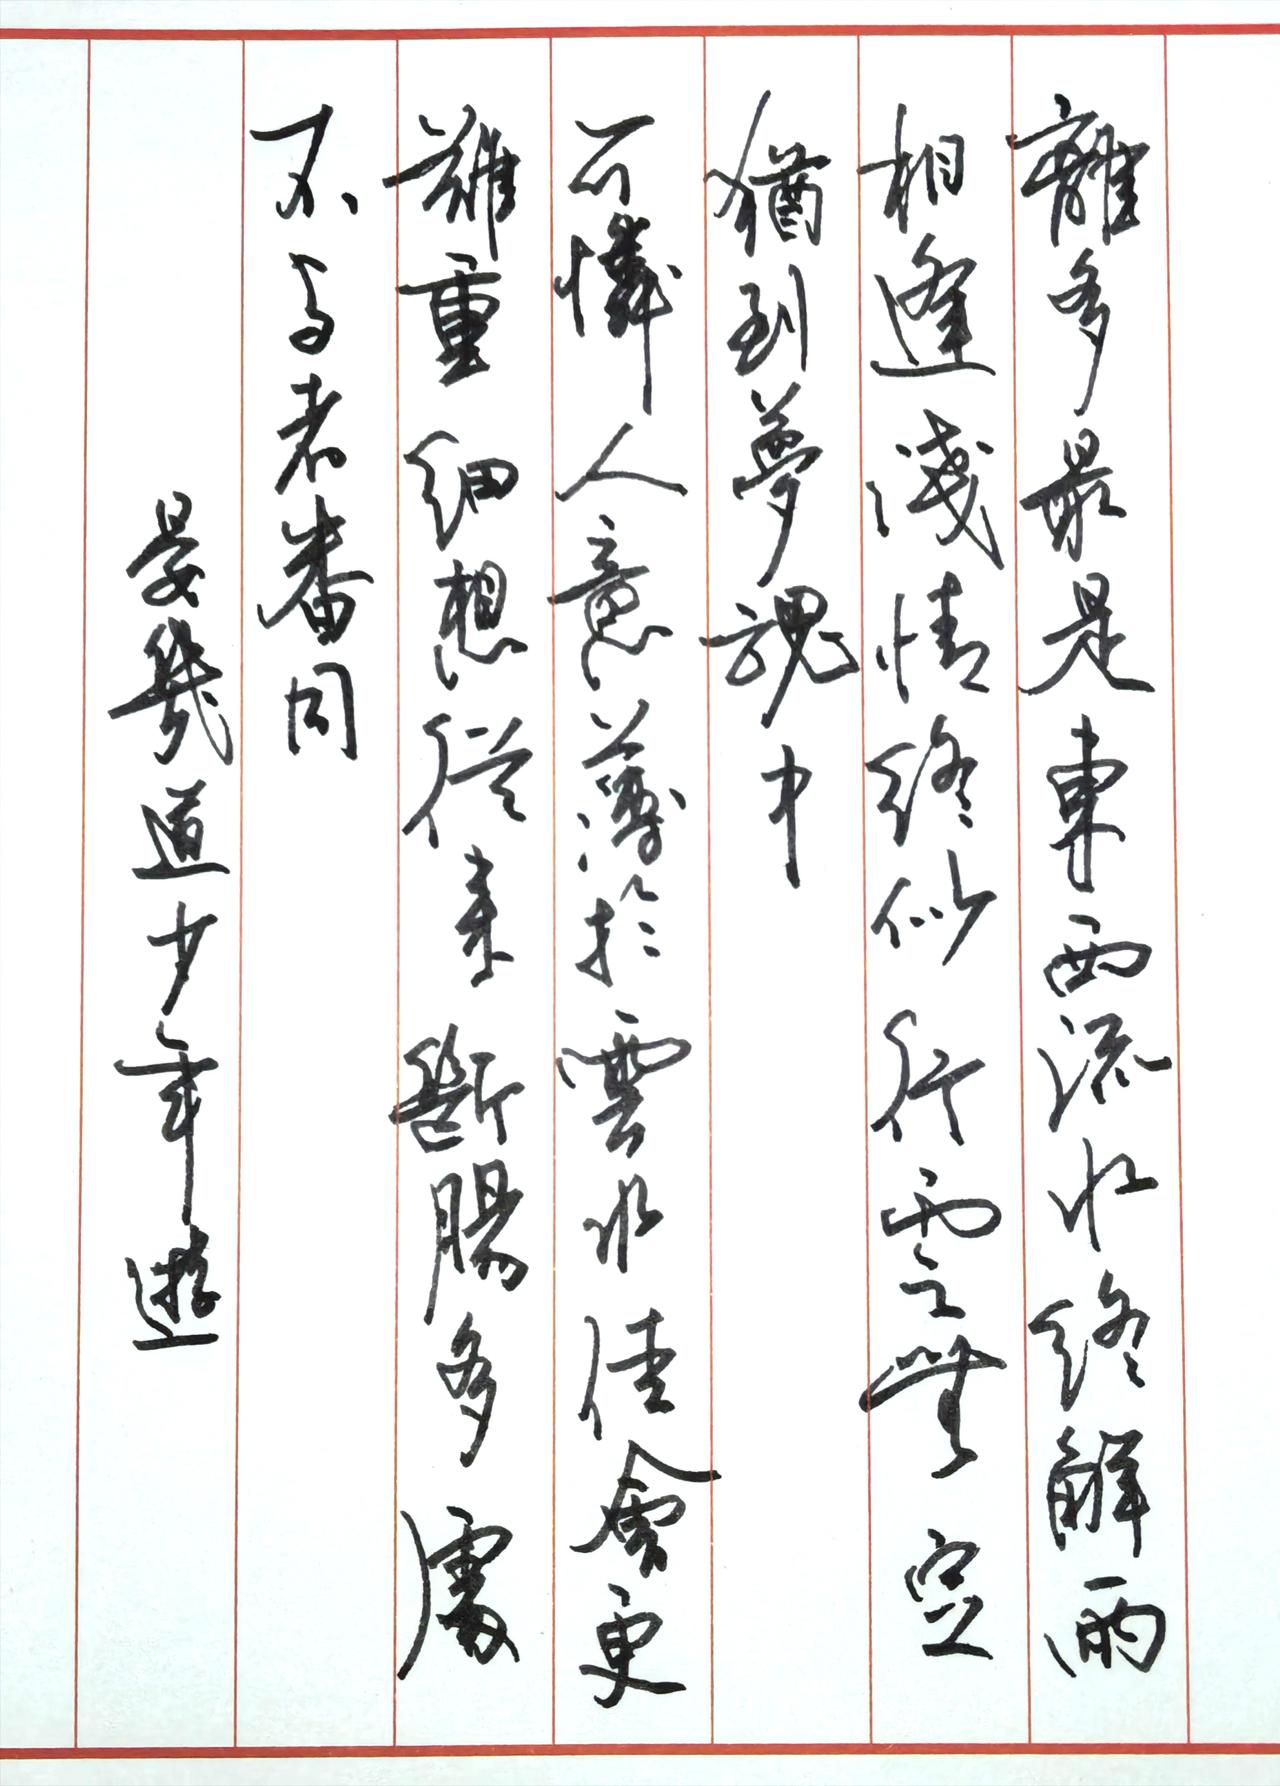 離多最是東西流水終解兩
相逢淺情終似行雲無定
猶到夢魂中
可憐人意薄於雲水佳會更
難重細想從來斷腸多處
不與者番同
晏幾道少年遊